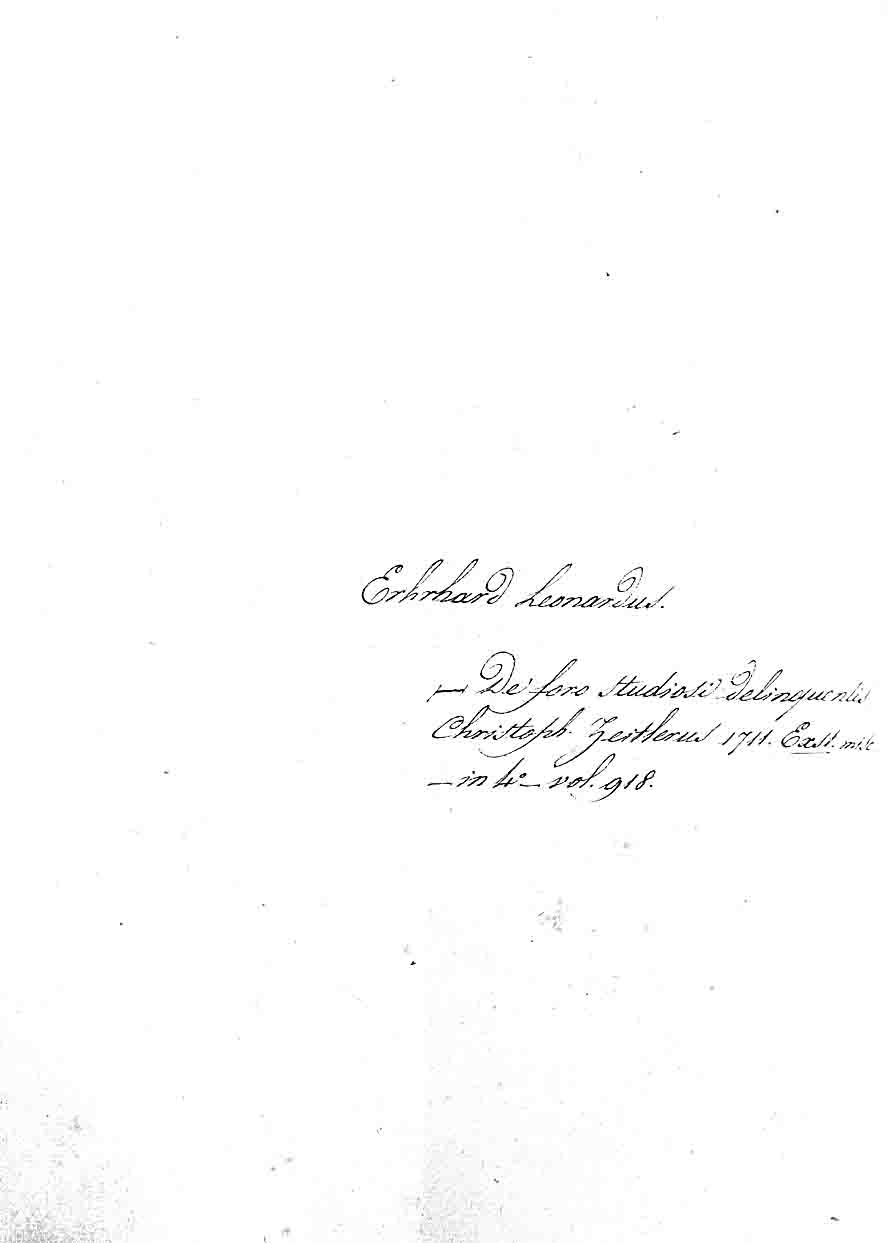 Erhrhard Leonardus.
— De foro studiosi delinquentis
Christoph. Zeitlerus 1711. Exst. misc
— in 4° — vol. 918.